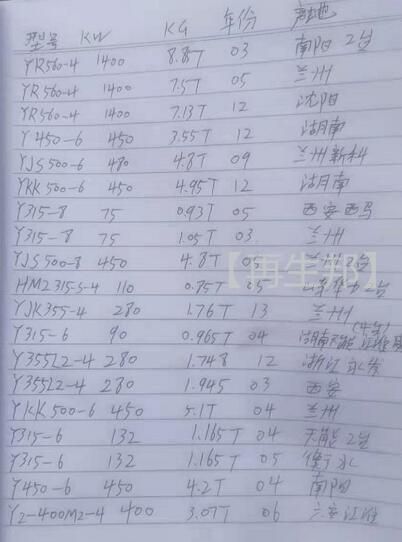 型号 KW KG 年份 产地
YR560-4 1400 8.8T 03 南阳 2台
YR560-4 1400 7.5T 05 兰州
YR560-4 1400 7.13T 12 沈阳
Y450-6 450 3.55T 12 湖南
YJS500-6 480 4.8T 09 兰州新科
YKK500-6 450 4.95T 12 湖南
Y315-8 75 0.93T 05 西安西马
Y315-8 75 1.05T 03 兰州
YJS500-8 450 4.8T 05 兰州 2台
【再生邦】
HM2315S-4 110 0.85T 05 山东华力 2台
YJK355-4 280 1.76T 13 兰州
Y315-6 90 0.965T 04 湖南天能
Y355L2-4 280 1.748 12 浙江
Y355L2-4 280 1.945 03 西安
YKK500-6 450 5.1T 04 兰州
Y315-6 132 1.165T 04 天能 2台
Y315-6 132 1.165T 05 衡水
Y450-6 450 4.2T 04 南阳
Y2-400M2-4 400 3.07T 06 六安江淮